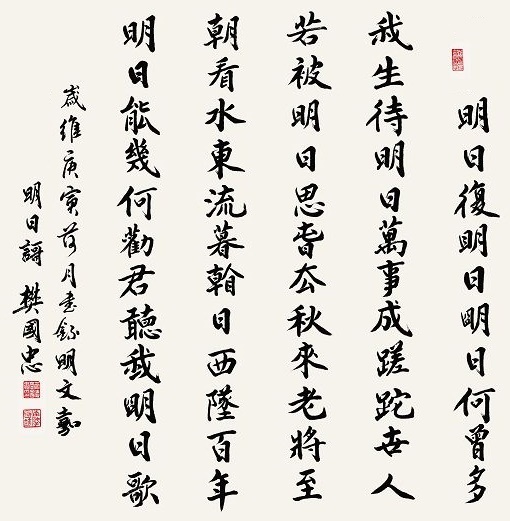 明日復明日明日何曾多
我生待明日萬事成蹉跎世人
若被明日累春去秋來老將至
朝看水東流暮看日西墜百年
明日能幾何勸君聽我明日歌
歲維庚寅荷月書錄明文嘉
明日謌 樊國忠